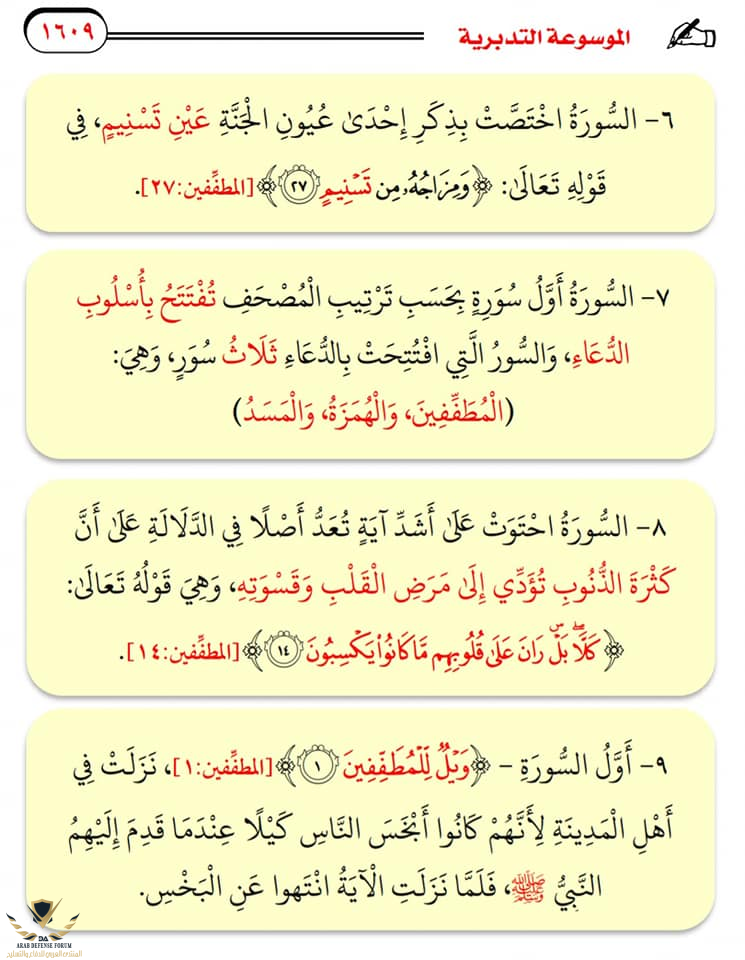 الموسوعة التدبرية
١٦٠٩
٦- السُّورَةُ اخْتَصَّتْ بِذِكَرِ إِحْدَىٰ عُيُونِ الْجَنَّةِ عَيْنِ تَسْنِيمٍ، فِي
قَوْلِهِ تَعَالَىٰ: ﴿وَمِزَاجُهُۥ مِن تَسْنِيمٍ ٢٧﴾ [المطفِّفين:٢٧].
٧- السُّورَةُ أَوَّلُ سُورَةٍ بِحَسَبِ تَرْتِيبِ الْمُصْحَفِ تُفْتَتَحُ بِأُسْلُوبِ
الدُّعَاءِ، وَالسُّورُ الَّتِي افْتُتِحَتْ بِالدُّعَاءِ ثَلَاثُ سُوَرٍ، وَهِيَ:
(الْمُطَفِّفِينَ، وَالْهُمَزَةُ، وَالْمَسَدُ)
٨- السُّورَةُ احْتَوَتْ عَلَىٰ أَشَدِّ آيَةٍ تُعَدُّ أَصْلًا فِي الدَّلَالَةِ عَلَىٰ أَنَّ
كَثْرَةَ الذُّنُوبِ تُؤَدِّي إِلَىٰ مَرَضِ الْقَلْبِ وَقَسْوَتِهِ، وَهِيَ قَوْلُهُ تَعَالَىٰ:
﴿كَلَّاۖ بَلْۜ رَانَ عَلَىٰ قُلُوبِهِم مَّا كَانُوا۟ يَكْسِبُونَ ١٤﴾ [المطفِّفين:١٤].
٩- أَوَّلُ السُّورَةِ - ﴿وَيْلٌ لِّلْمُطَفِّفِينَ ١﴾ [المطفِّفين:١]، نَزَلَتْ فِي
أَهْلِ الْمَدِينَةِ لِأَنَّهُمْ كَانُوا أَبْخَسَ النَّاسِ كَيْلًا عِنْدَمَا قَدِمَ إِلَيْهِمُ
النَّبِيُّ ﷺ، فَلَمَّا نَزَلَتِ الْآيَةُ انْتَهوا عَنِ الْبَخْسِ.
DA
ARAB DEFENSE FORUM
المنتدى العربي للدفاع والتسليح